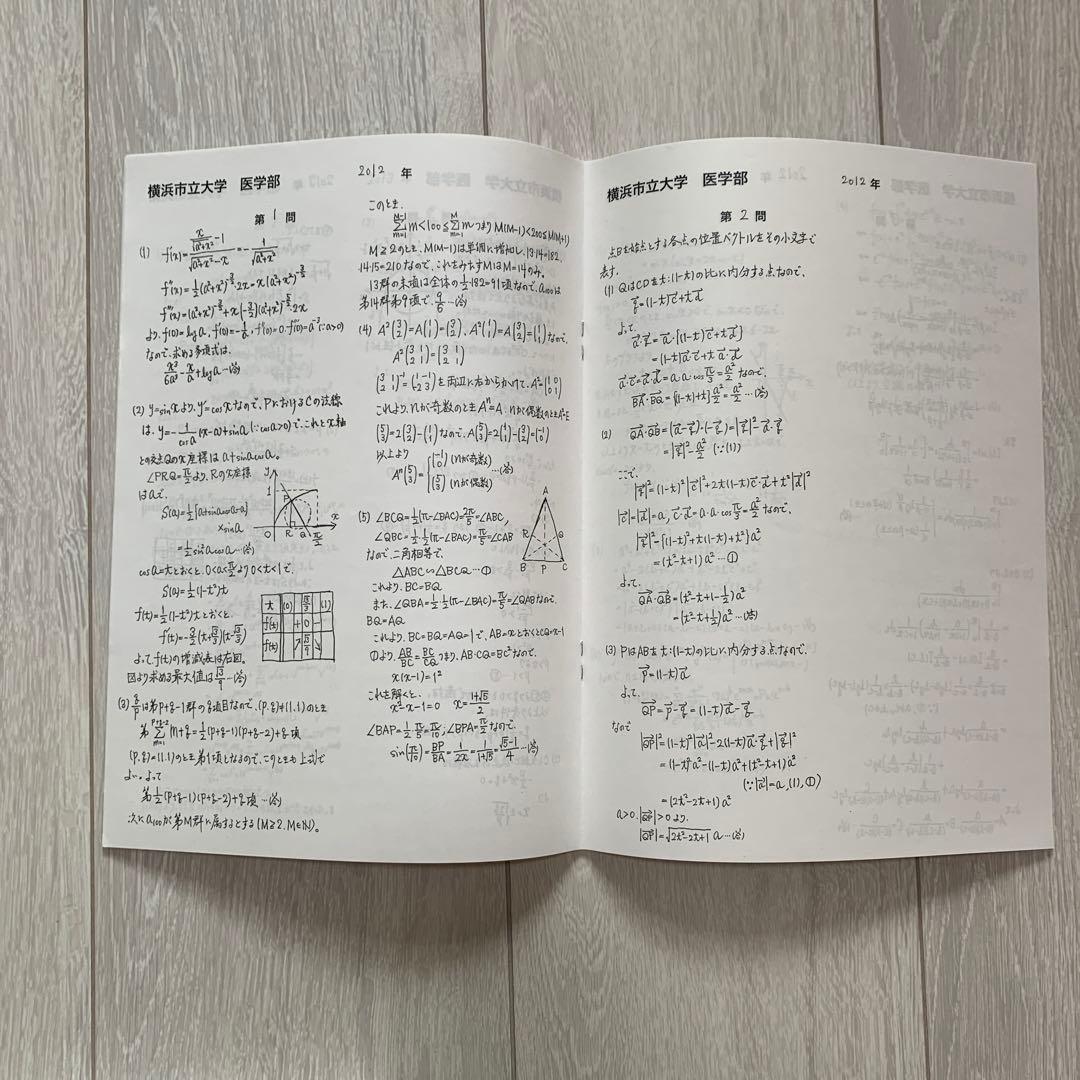 横浜市立大学 医学部
2012 年
第 1 問
(1) f'(x) = (x/√(a²+x²) - 1)/(√(a²+x²) - x) = -1/√(a²+x²)
f''(x) = ½(a²+x²)^(-3/2)・2x = x(a²+x²)^(-3/2)
f'''(x) = (a²+x²)^(-3/2) + x(-3/2)(a²+x²)^(-5/2)・2x
より、f(0)=log a, f'(0)=-1/a, f''(0)=0, f'''(0)=a⁻³ (∵a>0)
なので、求める多項式は、
x³/6a³ - x/a + log a …(答)
(2) y=sin xより、y'=cos xなので、PにおけるCの法線
は、y=-1/cos a (x-a)+sin a (∵cos a>0)で、これとx軸
との交点Qのx座標はa+sin a cos a。
∠PRQ=π/2より、Rのx座標
はaで、
S(a)=½{a+sin a cos a-a}
×sin a
=½sin²a cos a …(答)
y
1
P
O
R
Q
π/2
x
cos a=tとおくと、0<a<π/2より0<t<1で、
S(a)=½(1-t²)t
f(t)=½(1-t²)tとおくと、
f'(t)=-3/2(t+√3/3)(t-√3/3)
t (0) √3/3 (1)
f'(t) + 0 -
f(t) ↗ √3/9 ↘
よって、f(t)の増減表は右図。
図より求める最大値は√3/9 …(答)
(3) q/pは第p+q-1群のq項目なので、(p,q)≠(1,1)のとき
第 Σ[m=1, p+q-2] m+q=½(p+q-1)(p+q-2)+q 項
(p,q)=(1,1)のとき第1項となるので、このときも上式で
よい。よって
第½(p+q-1)(p+q-2)+q項 …(答)
次にa₁₀₀が第M群に属するとする(M≧2, M∈N)。
このとき、
Σ[m=1, M-1] m<100≦Σ[m=1, M] m つまり M(M-1)<200≦M(M+1)
M≧2のとき、M(M-1)は単調に増加し、13・14=182,
14・15=210なので、これをみたすMはM=14のみ。
13群の末項は全体の½・182=91項なので、a₁₀₀は
第14群第9項で、9/6 …(答)
(4) A²(3 2)=A(1 1)=(3 2)、A²(1 1)=A(3 2)=(1 1)なので、
A²(3 1; 2 1)=(3 1; 2 1)
(3 1; 2 1)⁻¹=(1 -1; -2 3)を両辺に右からかけて、A²=(1 0; 0 1)
これより、nが奇数のときAⁿ=A、nが偶数のときAⁿ=E
(5 3)=2(3 2)-(1 1)なので、A(5 3)=2(1 1)-(3 2)=(-1 0)
以上より
Aⁿ(5 3)={(-1 0) (nが奇数)
(5 3) (nが偶数) …(答)
(5) ∠BCQ=½(π-∠BAC)=2π/5=∠ABC,
∠QBC=½・½(π-∠BAC)=π/5=∠CAB
なので、二角相等で、
△ABC∽△BCQ …①
これより、BC=BQ
また、∠QBA=½・½(π-∠BAC)=π/5=∠QABなので、
BQ=AQ
A
R
Q
B
P
C
これより、BC=BQ=AQ=1で、AB=xとおくとCQ=x-1
①より、AB/BC=BC/CQ つまり、AB・CQ=BC²なので、
x(x-1)=1²
これを解くと、
x²-x-1=0 x=(1+√5)/2
∠BAP=½・π/5=π/10, ∠BPA=π/2なので、
sin(π/10)=BP/BA=1/2x=1/(1+√5)=(√5-1)/4 …(答)
横浜市立大学 医学部
2012 年
第 2 問
点Bを始点とする各点の位置ベクトルをその小文字で
表す。
(1) QはCDをt:(1-t)の比に内分する点なので、
q→=(1-t)c→+td→
よって、
a→・q→=a→・{(1-t)c→+td→}
=(1-t)a→・c→+ta→・d→
a→・c→=a→・d→=a・a・cos π/3=a²/2 なので、
BA→・BQ→={(1-t)+t}a²/2=a²/2 …(答)
(2) QA→・QB→=(a→-q→)・(-q→)=|q→|²-a→・q→
=|q→|²-a²/2 (∵(1))
ここで、
|q→|²=(1-t)²|c→|²+2t(1-t)c→・d→+t²|d→|²
|c→|=|d→|=a, c→・d→=a・a・cos π/3=a²/2 なので、
|q→|²={(1-t)²+t(1-t)+t²}a²
=(t²-t+1)a² …①
よって、
QA→・QB→=(t²-t+1-½)a²
=(t²-t+½)a² …(答)
(3) PはABをt:(1-t)の比に内分する点なので、
p→=(1-t)a→
よって、
QP→=p→-q→=(1-t)a→-q→
なので
|QP→|²=(1-t)²|a→|²-2(1-t)a→・q→+|q→|²
=(1-t)²a²-(1-t)a²+(t²-t+1)a²
(∵|a→|=a, (1), ①)
=(2t²-2t+1)a²
a>0, |QP→|>0より、
|QP→|=√(2t²-2t+1) a …(答)